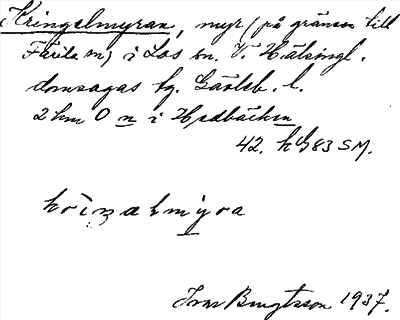 Kringelmyran, myr (på gränsen till
Färila sn) i Los sn. V. Hälsingl.
domsagas tg. Gävleb. l.
2 km O n i Hedbäcken
42. h G 83 SM.
Ivar Bengtsson 1937.